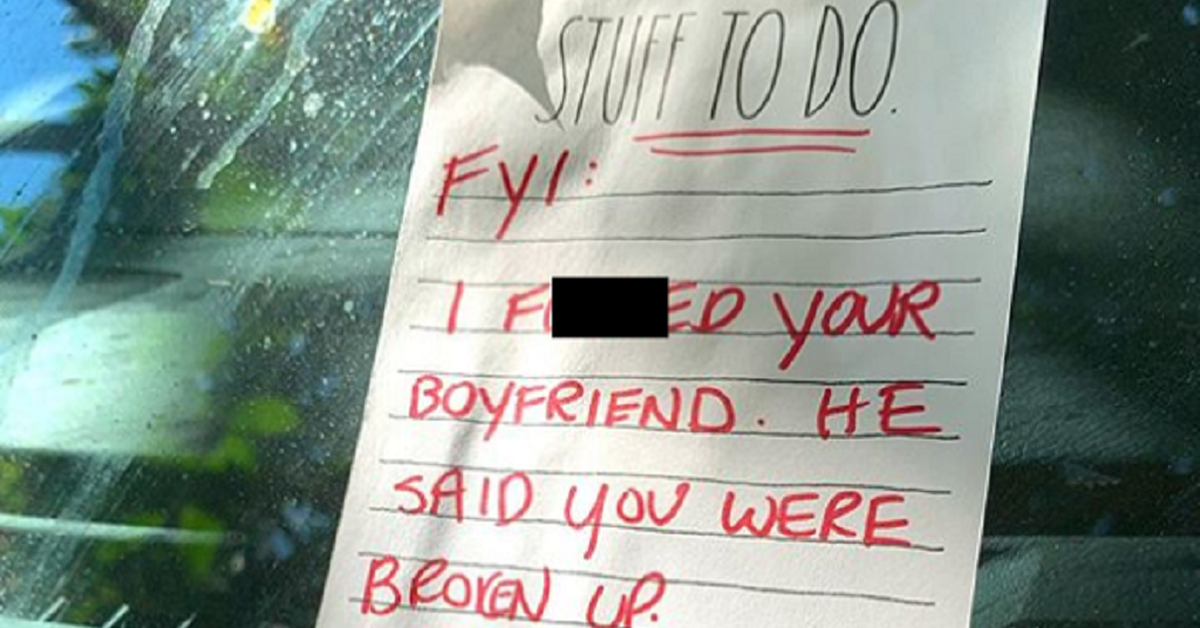 STUFF TO DO.
FYI:
I F ED YOUR
BOYFRIEND. HE
SAID YOU WERE
BROKEN UP.